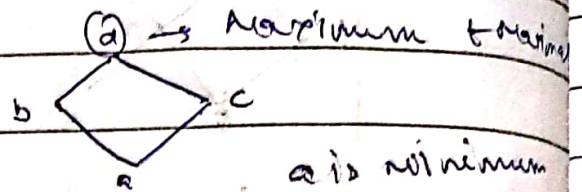 d → Maximum & Maximal
b c
a a is minimum